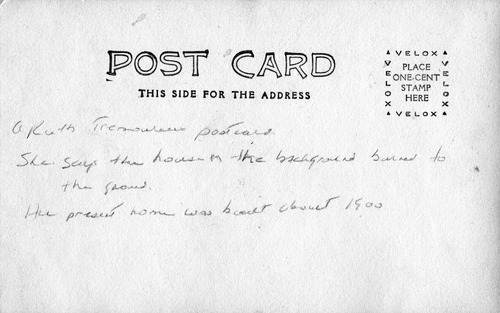 POST CARD
THIS SIDE FOR THE ADDRESS
VELOX
VELOX
VELOX
VELOX
PLACE
ONE-CENT
STAMP
HERE
A Ruth postcard.
She says the house in the background burned to
the ground.
Her present home was built about 1900